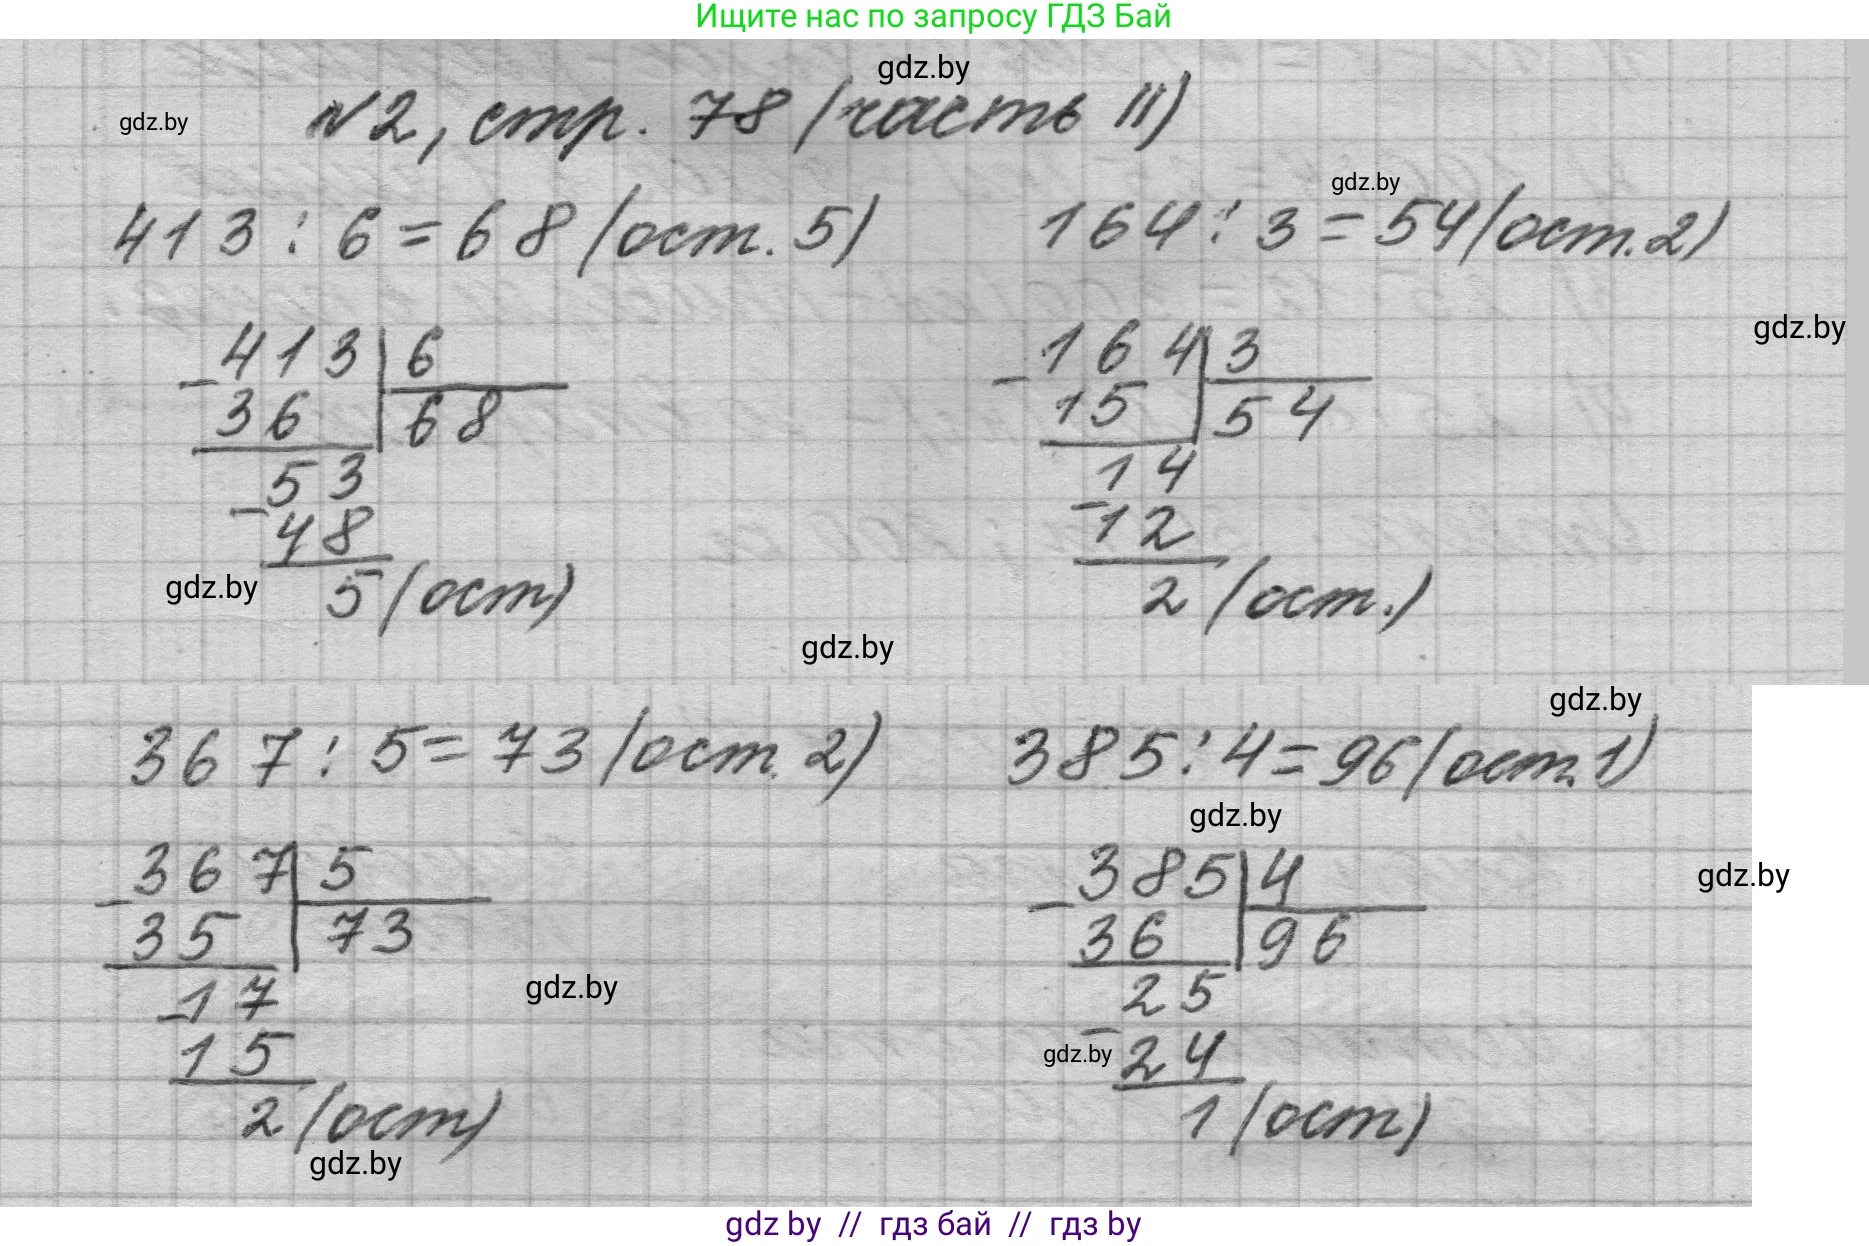 Ищите нас по запросу ГДЗ Бай
gdz.by
gdz.by
№2, стр. 78 (часть II)
gdz.by
413 : 6 = 68 (ост. 5)
164 : 3 = 54 (ост. 2)
gdz.by
413 | 6
− 36 | 68
53
− 48
5 (ост)
164 | 3
− 15 | 54
14
− 12
2 (ост.)
gdz.by
gdz.by
gdz.by
367 : 5 = 73 (ост. 2)
385 : 4 = 96 (ост. 1)
gdz.by
gdz.by
367 | 5
− 35 | 73
− 17
15
2 (ост)
385 | 4
− 36 | 96
25
− 24
1 (ост)
gdz.by
gdz.by
gdz.by
gdz by // гдз бай // гдз by